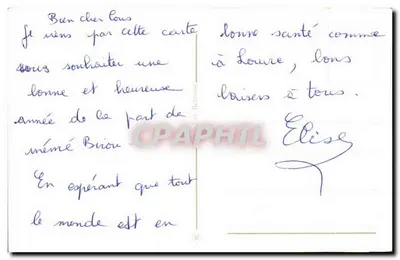 Bien cher tous
Je viens par cette carte
vous souhaiter une
bonne et heureuse
année de la part de
mémé Birou
En espérant que tout
le monde est en
bonne santé comme
à Louvre, bons
baisers à tous.
Elise
CPAPHIL